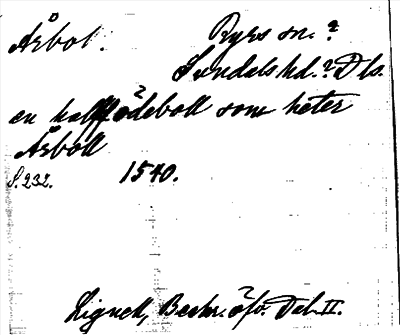 Årbol. Ryrs sn. ?
Sundals hd. ? Dls.
en half ödeboll som heter
Årboll
S. 232. 1540.
Lignell, Beskr. öfv. Dal. II.